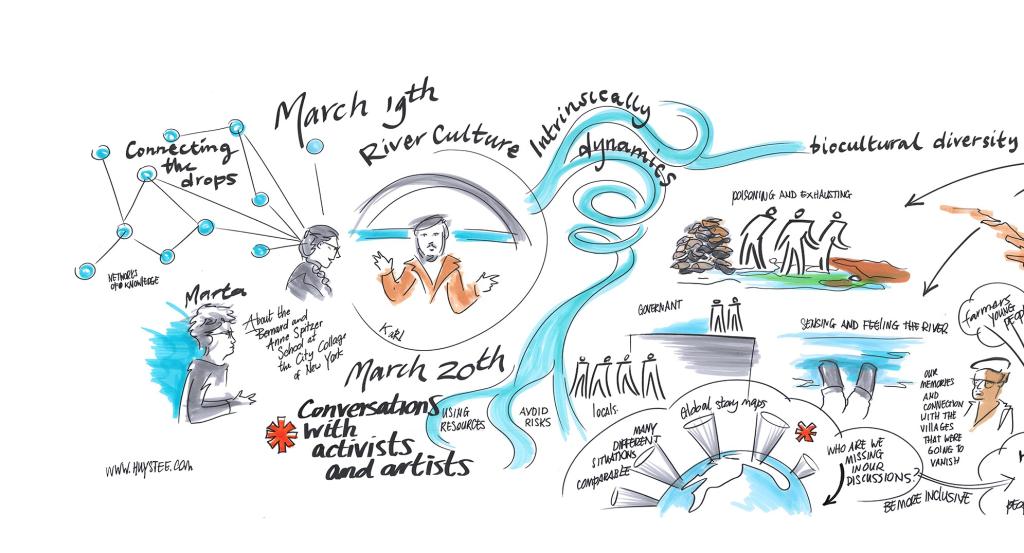 March 19th
Connecting
the
drops
NETWORKS
OF KNOWLEDGE
River Culture
Intrinsically
dynamics
biocultural diversity
Karl
Marta
About the
Bernard and
Anne Spitzer
School at
the City Collage
of New York
March 20th
Conversations
with
activists
and artists
www.HUYSTEE.com
USING
RESOURCES
AVOID
RISKS
POISONING AND EXHAUSTING
GOVERNANT
locals:
SENSING AND FEELING THE RIVER
farmers
YOUNG
OUR
MEMORIES
AND
CONNECTION
WITH THE
VILLAGES
THAT WERE
GOING TO
VANISH
Global story maps
MANY
DIFFERENT
SITUATIONS
COMPARABLE
WHO ARE WE
MISSING
IN OUR
DISCUSSIONS?
BE MORE INCLUSIVE